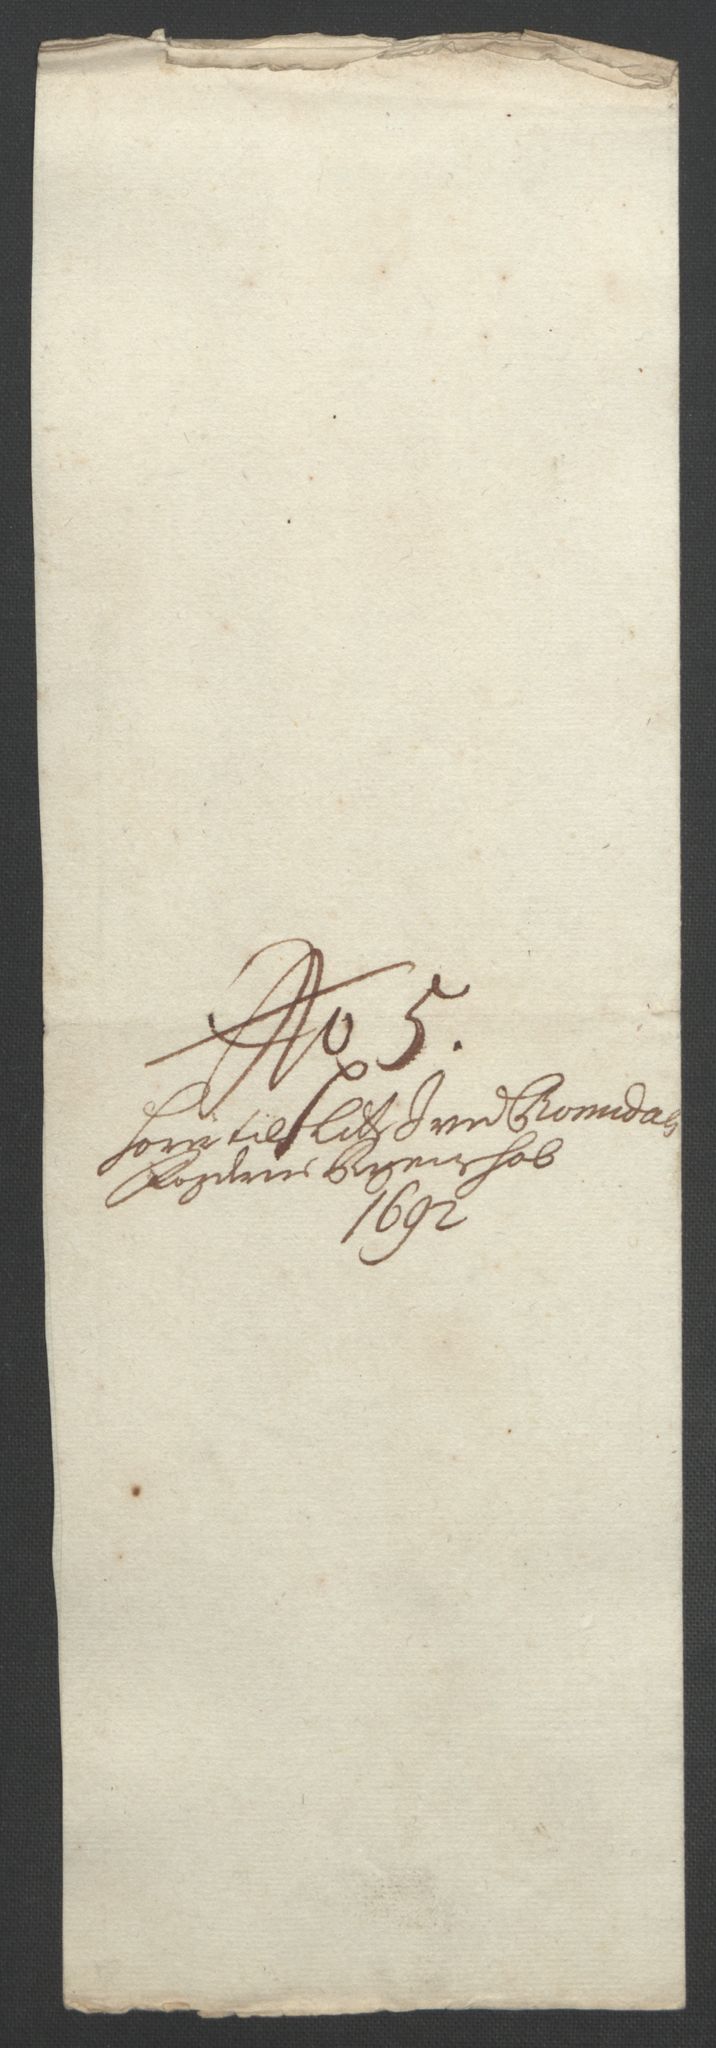 No 5.
hører til Litr J ved Romsdals
Fogderies Regenschab
1692